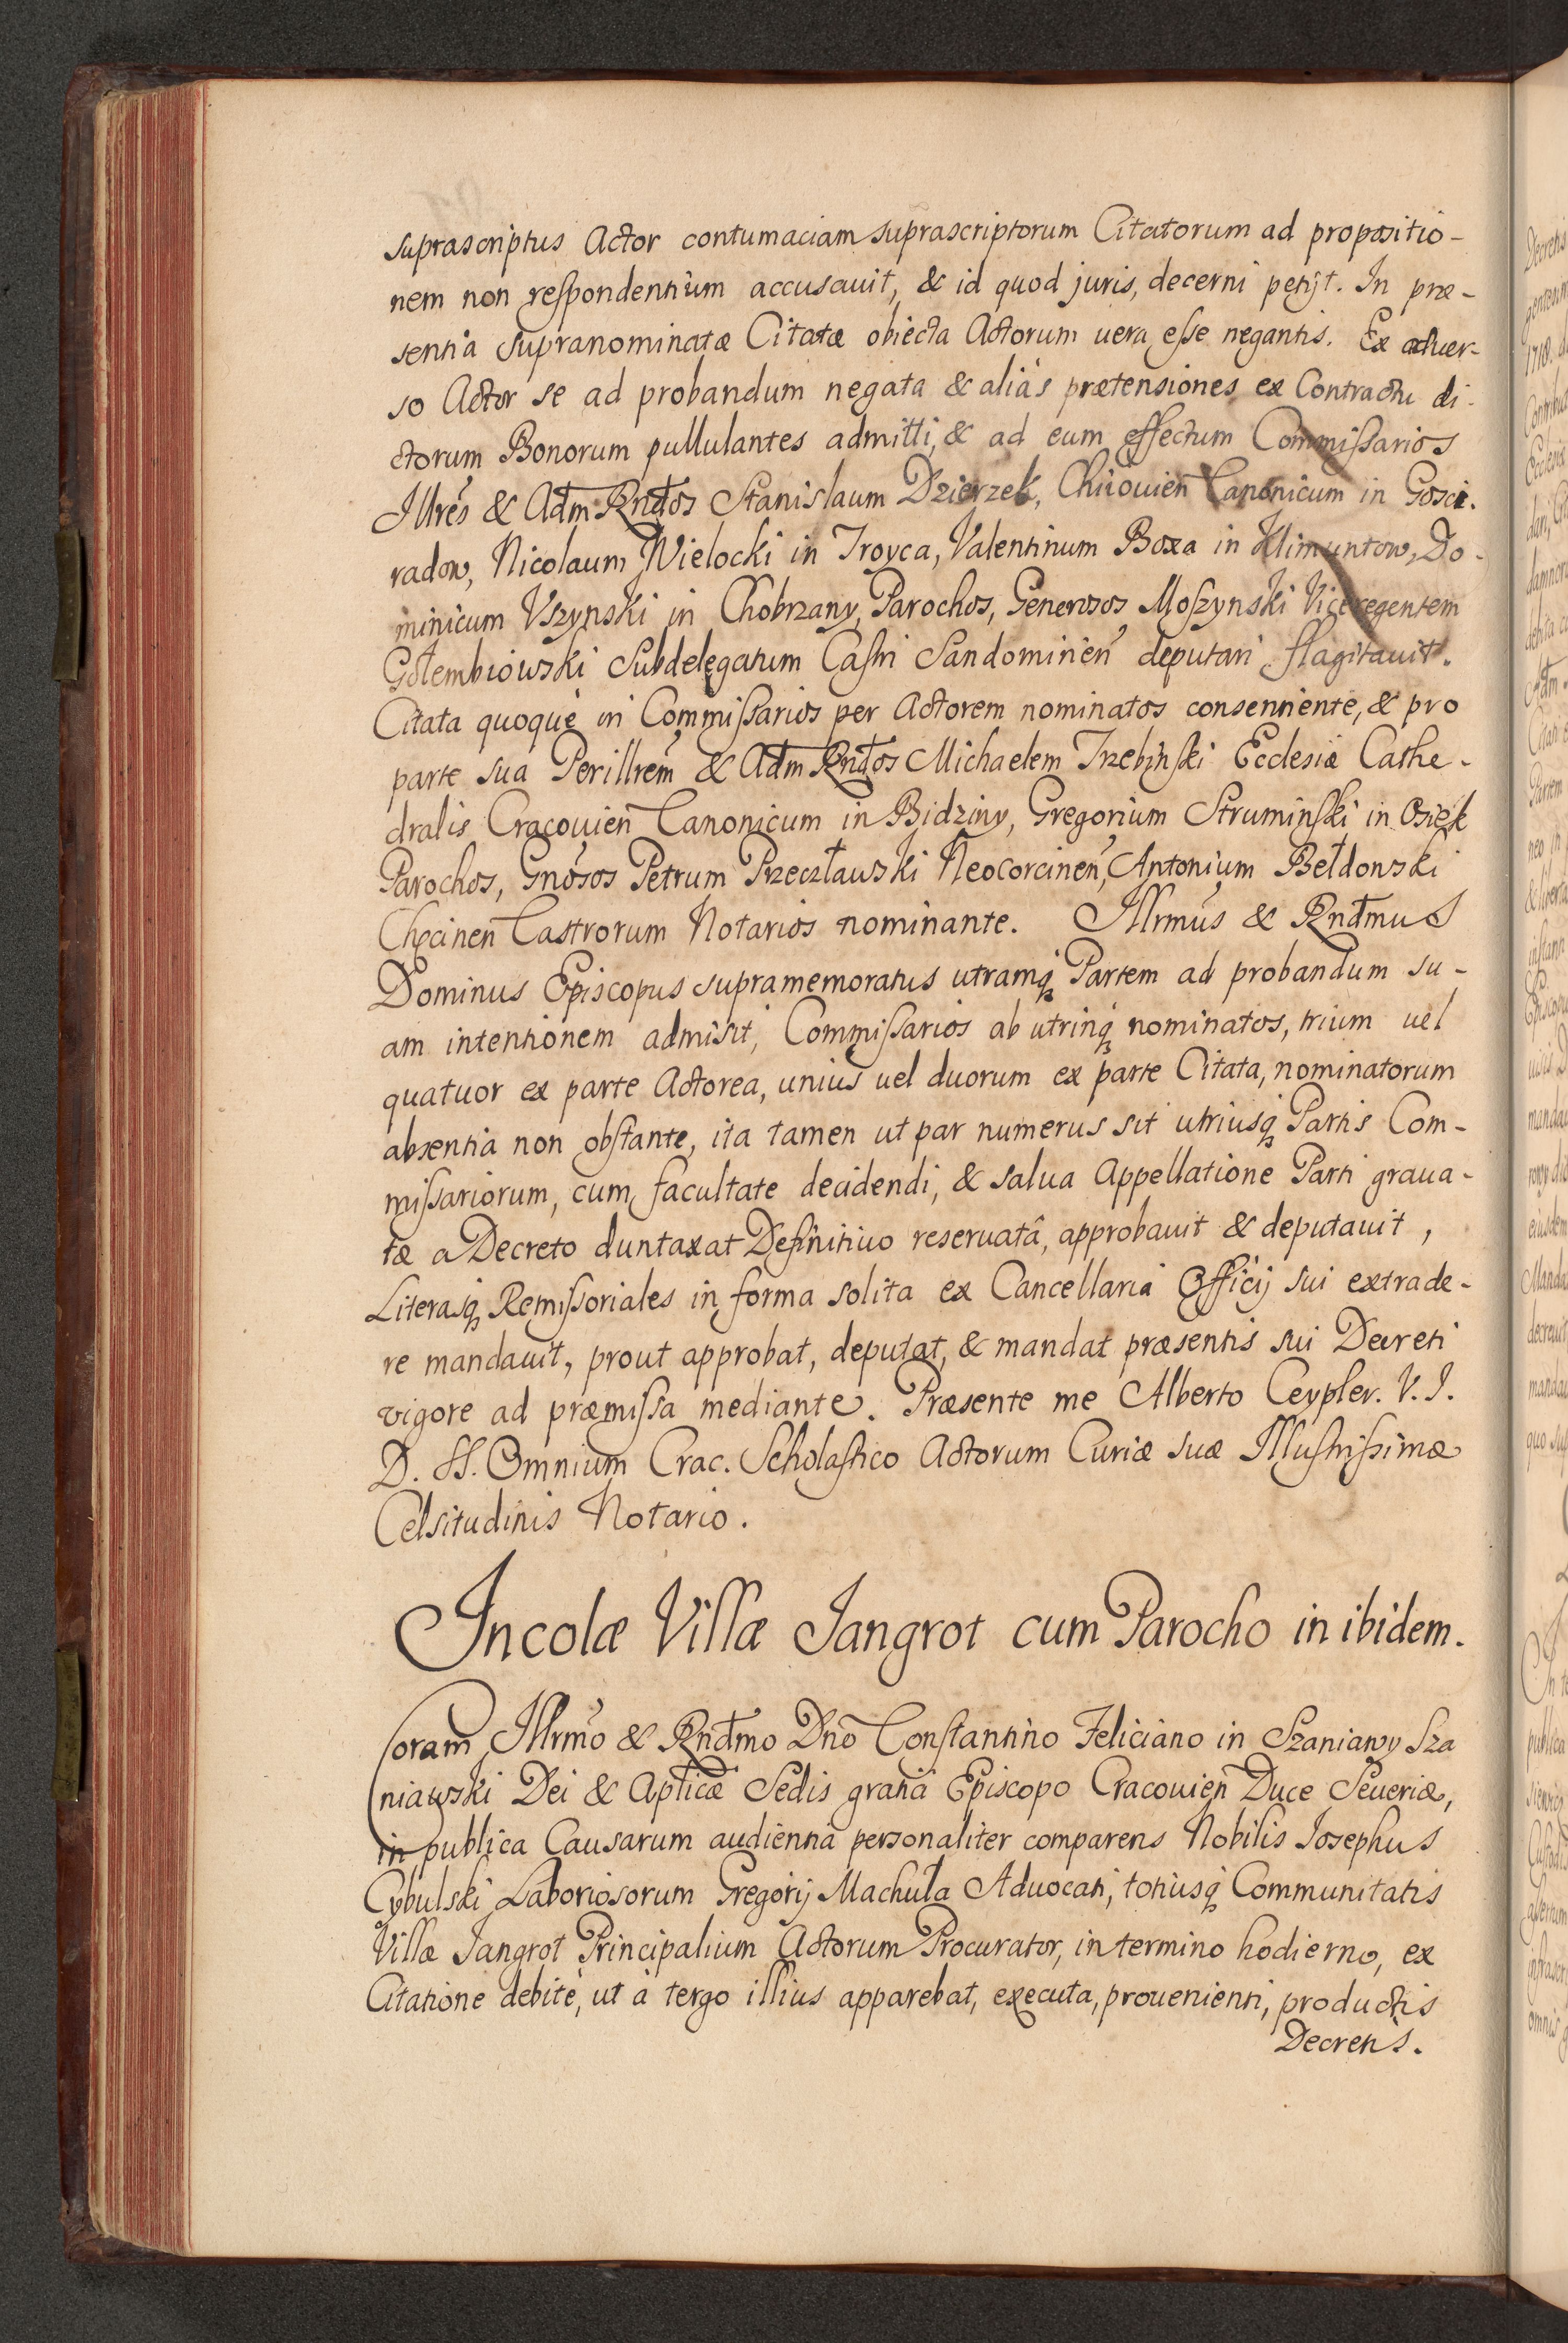 suprascriptus Actor contumaciam suprascriptorum Citatorum ad propositio-
nem non respondentium accusauit, & id quod juris, decerni petijt. In præ-
sentia supranominatæ Citatæ obiecta Actorum uera esse negantis. Ex aduer-
so Actor se ad probandum negata & aliàs prætensiones ex Contractu di-
ctorum Bonorum pullulantes admitti, & ad eum effectum Commissarios
Illrēs & Adm Rndos Stanislaum Dzierzek, Chiiouien Canonicum in Gosci-
radow, Nicolaum Wielocki in Troyca, Valentinum Boxa in Klimuntow, Do-
minicum Vszynski in Chobrzany, Parochos, Generosos Moszynski Viceregentem
Gołembiowski Subdelegatum Castri Sandominen̄ deputari flagitauit.
Citata quoque in Commissarios per Actorem nominatos consentiente, & pro
parte sua Perillrem̄ & Adm Rndos Michaelem Trzebinski Ecclesiæ Cathe-
dralis Cracouien Canonicum in Bidziny, Gregorium Struminski in Osiek
Parochos, Gnōsos Petrum Przecztawski Neocorcinen̄, Antonium Bełdonski
Chęcinen Castrorum Notarios nominante. Illrmūs & Rndmus
Dominus Episcopus supramemoratus utramq̨ Partem ad probandum su-
am intentionem admisit, Commissarios ab utrinq̨ nominatos, trium uel
quatuor ex parte Actorea, unius uel duorum ex parte Citata, nominatorum
absentia non obstante, ita tamen ut par numerus sit utriusq̨ Partis Com-
missariorum, cum facultate decidendi, & salua Appellatione Parti graua-
tæ a Decreto duntaxat Definitiuo reseruatâ, approbauit & deputauit,
Literasq̨ Remissoriales in forma solita ex Cancellaria Officij sui extrade-
re mandauit, prout approbat, deputat, & mandat præsentis sui Decreti
vigore ad præmissa mediante. Præsente me Alberto Ceypler. V. J.
D. SS. Omnium Crac. Scholastico Actorum Curiæ suæ Illustrissimæ
Celsitudinis Notario.
Incolæ Villæ Jangrot cum Parocho in ibidem.
Coram Illrmō & Rndmo Dnō Constantino Feliciano in Szaniawy Sza
niawski Dei & Aplicæ Sedis gratia Episcopo Cracouien Duce Seueriæ,
in publica Causarum audientia personaliter comparens Nobilis Josephus
Cybulski Laboriosorum Gregorij Machuła Aduocati, totiusq̨ Communitatis
Villæ Jangrot Principalium Actorum Procurator, in termino hodierno, ex
Citatione debitè, ut à tergo illius apparebat, executa, prouenienti, productis
Decretis.